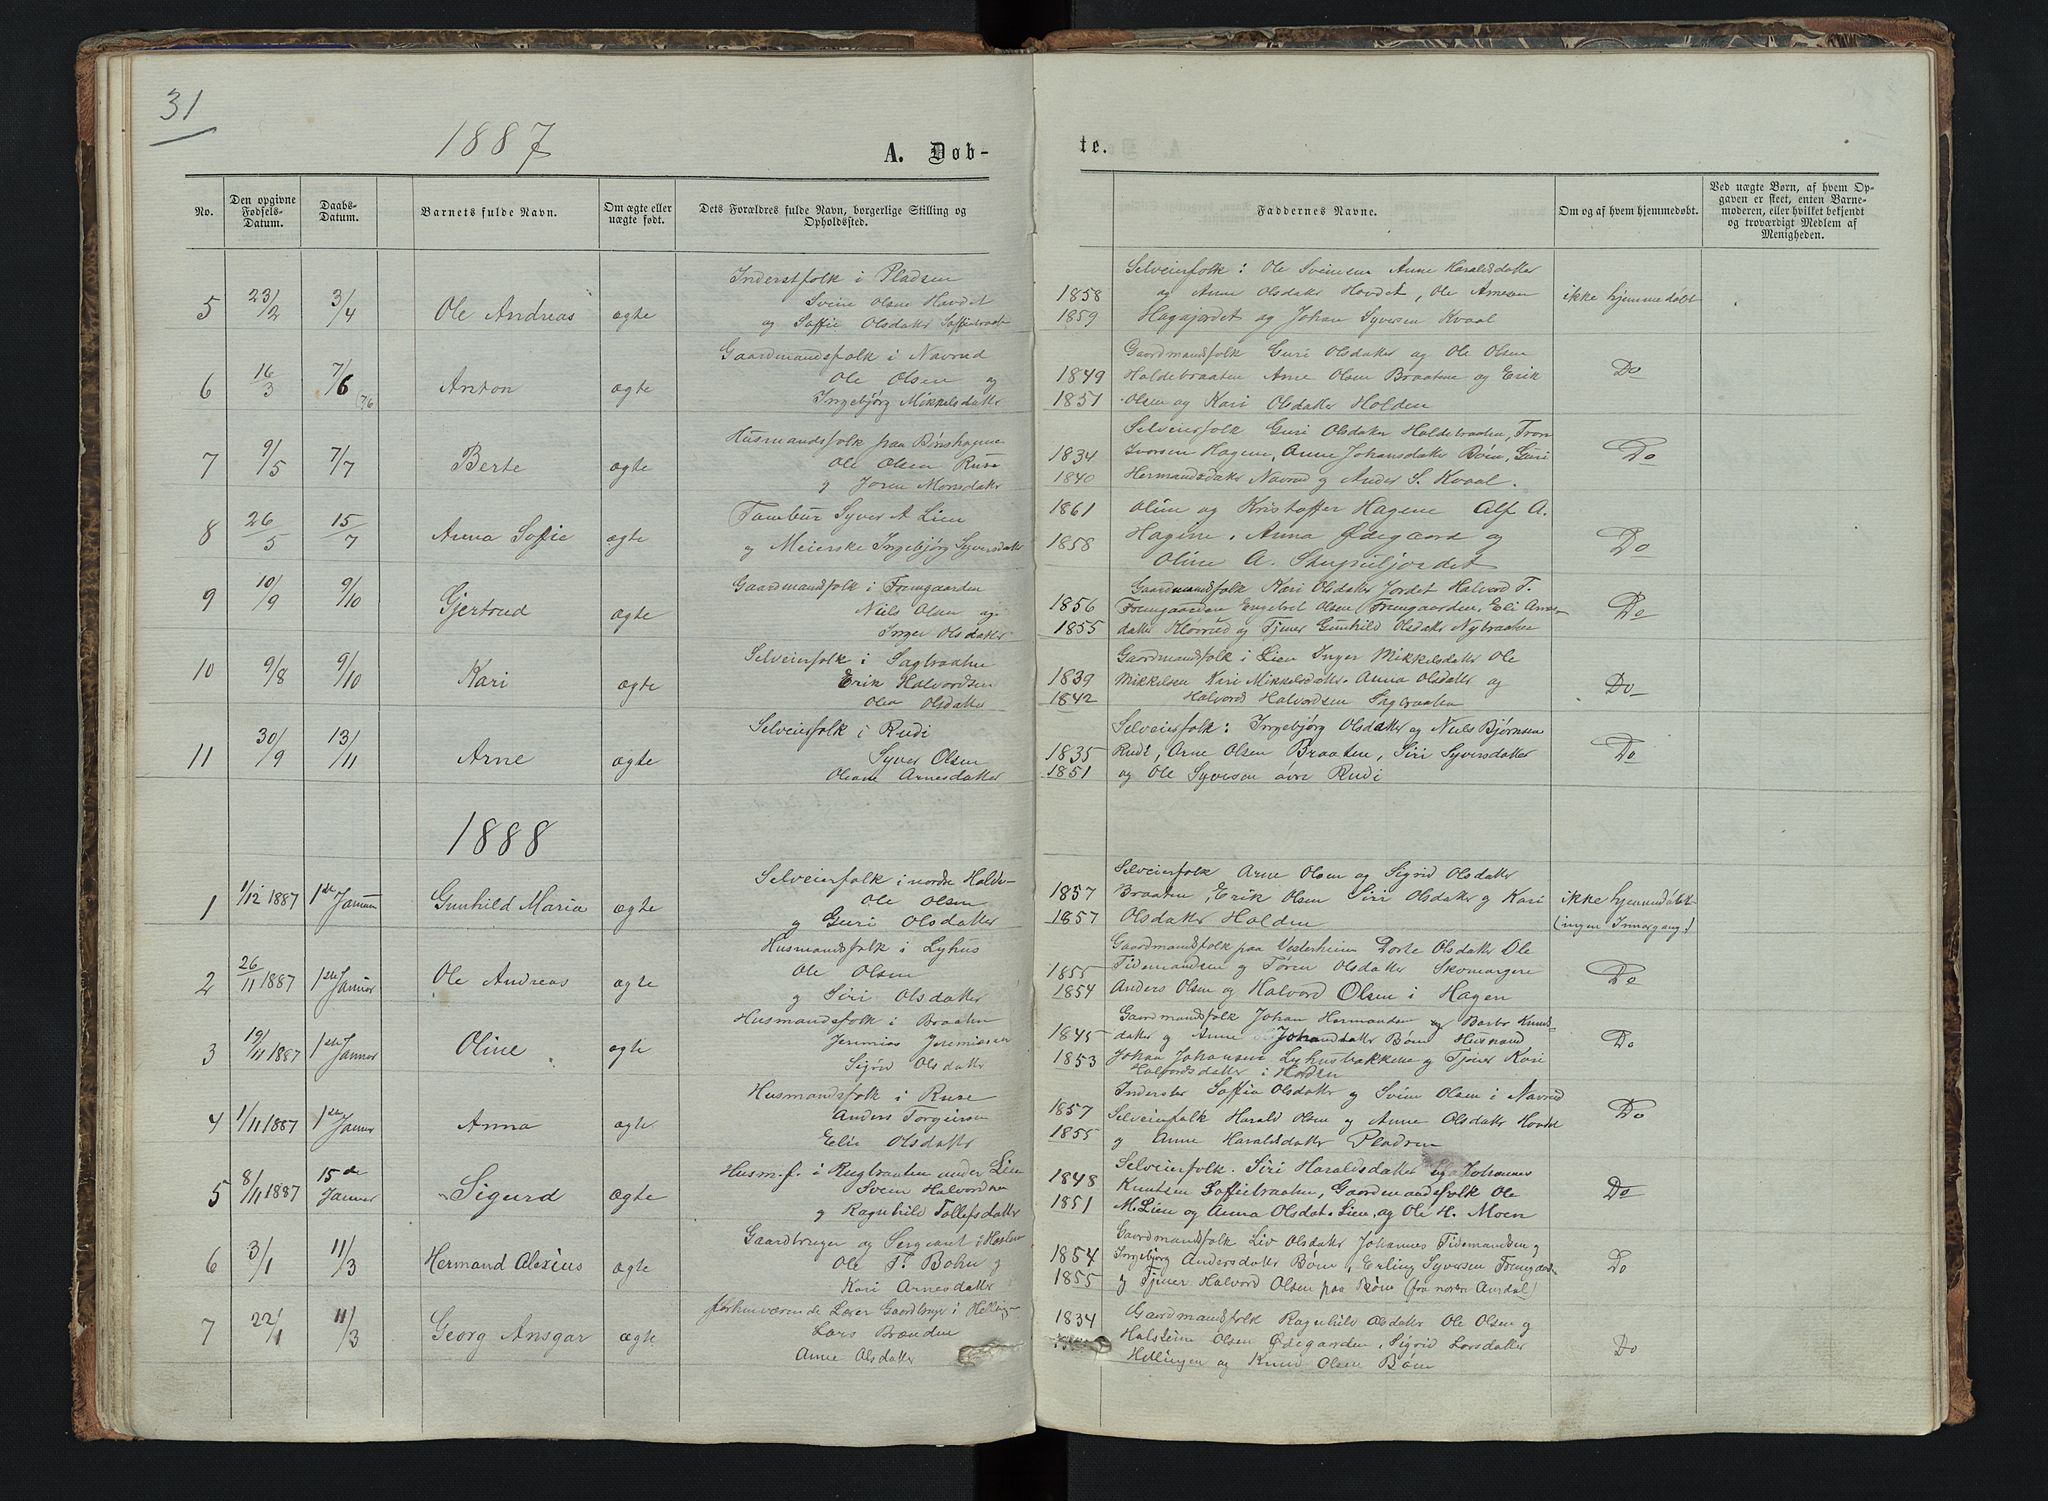 31
1887
A. Døb-
te.
No.
Den opgivne Fødsels-Datum.
Daabs-Datum.
Barnets fulde Navn.
Om ægte eller uægte født.
Dets Forældres fulde Navn, borgerlige Stilling og Opholdssted.
Faddernes Navne.
Om og af hvem hjemmedøbt.
Ved uægte Børn, af hvem Op-
gaven er skeet, enten Barne-
moderen, eller hvilket bekjendt
og troværdigt Medlem af
Menigheden.
5 23/2 3/4 Ole Andreas ægte
Inderstfolk i Pladsen
Svein Olsen Hovdet
og Soffie Olsdatter Soffiebraate
1858
1859
Selveierfolk: Ole Sveinsen Anne Haraldsdatter
og Anne Olsdatter Hovdet, Ole Arnesen
Hagajordet og Johan Syversen Kvaal
ikke hjemmedøbt
6 16/3 7/6 7/6 Anton ægte
Gaardmandsfolk i Navrud
Ole Olsen og
Ingebjørg Mikkelsdatter
1849
1851
Gaardmandsfolk Guri Olsdatter og Ole Olsen
Haldebraaten Arne Olsen Braaten og Erik
Olsen og Kari Olsdatter Holden
Do
7 9/5 7/7 Berte ægte
Husmandsfolk paa Bønshagen
Ole Olsen Ruse
og Joren Monsdatter
1834
1840
Selveierfolk Guri Olsdatter Haldebraaten, Tron
Ivorsen Hagene, Anne Johansdatter Bøen, Guri
Hermandsdatter Navrud og Andes S. Kvaal.
Do
8 26/5 15/7 Anna Soffie ægte
Tambur Syver A Lien
og Meierske Ingebjørg Syversdatter
1861
1858
Olim og Kristoffer Hagene Alf A.
Hagene, Anna Ødegaard og
Oline A. Skogsiljordet
Do
9 10/9 9/10 Gjertrud ægte
Gaardmandsfolk i Fremgaarden
Niels Olsen og
Inger Olsdatter
1856
1855
Gaardmandsfolk Kari Olsdatter Jordet Halvord T.
Fremgaarden Engebret Olsen Fremgaarden, Eli Arnes-
datter Kløvrud og Tjener Gunhild Olsdatter Nybraaten
Do
10 9/8 9/10 Kari ægte
Selveierfolk i Sagbraaten
Erik Halvordsen
Olea Olsdatter
1839
1842
Gaardmandsfolk i Lien Inger Mikkelsdatter Ole
Mikkelsen Kari Mikkelsdatter. Anna Olsdatter og
Halvord Halvordsen Sagbraaten
Do
11 30/9 13/11 Arne ægte
Selveierfolk i Rudi
Syver Olsen
Oleane Arnesdatter
1835
1851
Selveierfolk: Ingebjørg Olsdatter og Niels Bjørnsen
Rudi, Arne Olsen Braaten, Siri Syversdatter
og Ole Syversen øvre Rudi
Do
1888
1 1/12 1887 1ste Januar Gunhild Maria ægte
Selveierfolk i nordre Halde-
Ole Olsen
og Guri Olsdatter
1857
1857
Selveierfolk Arne Olsen og Sigrid Olsdatter
Braaten, Erik Olsen Siri Olsdatter og Kari
Olsdatter Holden
ikke hjemmedøbt
(ingen Innergang!)
2 26/11 1887 1ste Januar Ole Andreas ægte
Husmandsfolk i Lyhus
Ole Olsen
og Siri Olsdatter
1855
1854
Gaardmandsfolk paa Vesterheim Dorte Olsdatter Ole
Tidemandsen og Tøren Olsdatter Skomangene
Anders Olsen og Halvord Olsen i Hagen
Do
3 19/11 1887 1ste Januar Oline ægte
Husmandsfolk i Braaten
Jeremias Jeremiasen
Sigrid Olsdatter
1845
1853
Gaardmandsfolk Johan Hermandsen og Barbo Knuds-
datter og Anne Johansdatter Bøen Husmand
Johan Johansen Lyhusbakkene og Tjener Kari
Halvordsdatter i Holden
Do
4 1/11 1887 1ste Januar Anna ægte
Husmandsfolk i Ruse
Anders Torgersen
Elie Olsdatter
1857
1855
Inderster Soffia Olsdatter og Svein Olsen i Navrud
Selveierfolk Harald Olsen og Anne Olsdatter Hovdet
og Anne Haraldsdatter Pladsen
Do
5 8/11 1887 15de Januar Sigurd ægte
Husm.f. i Rugbraaten under Lien
Svein Halvordsen
og Ragnhild Tollefsdatter
1848
1851
Selveierfolk. Siri Haraldsdatter og Johannes
Knutsen Soffiebraaten, Gaardmandsfolk Ole
M. Lien og Anna Olsdat. Lien, og Ole H. Moen
Do
6 3/1 11/3 Hermand Alexius ægte
Gaardbruger og Sergeant i
Ole T. Bohn og
Kari Arnesdatter
1854
1855
Gaardmandsfolk Liv Olsdatter Johannes Tidemandsen og
Ingebjørg Andersdatter Bøen, Erling Syversen Fremgaar-
og Tjener Halvord Olsen paa Bøen (fra nordre Aurdal)
Do
7 22/1 11/3 Georg Ansgar ægte
forhenværende Lærer Gaardbruger i Helling-
Lars Brænden
Anne Olsdatter
1834
Gaardmandsfolk Ragnhild Olsdatter Ole Olsen og
Halstein Olsen Ødegaarden, Sigrid Larsdatter
Hellingen og Knud Olsen Bøen
Do